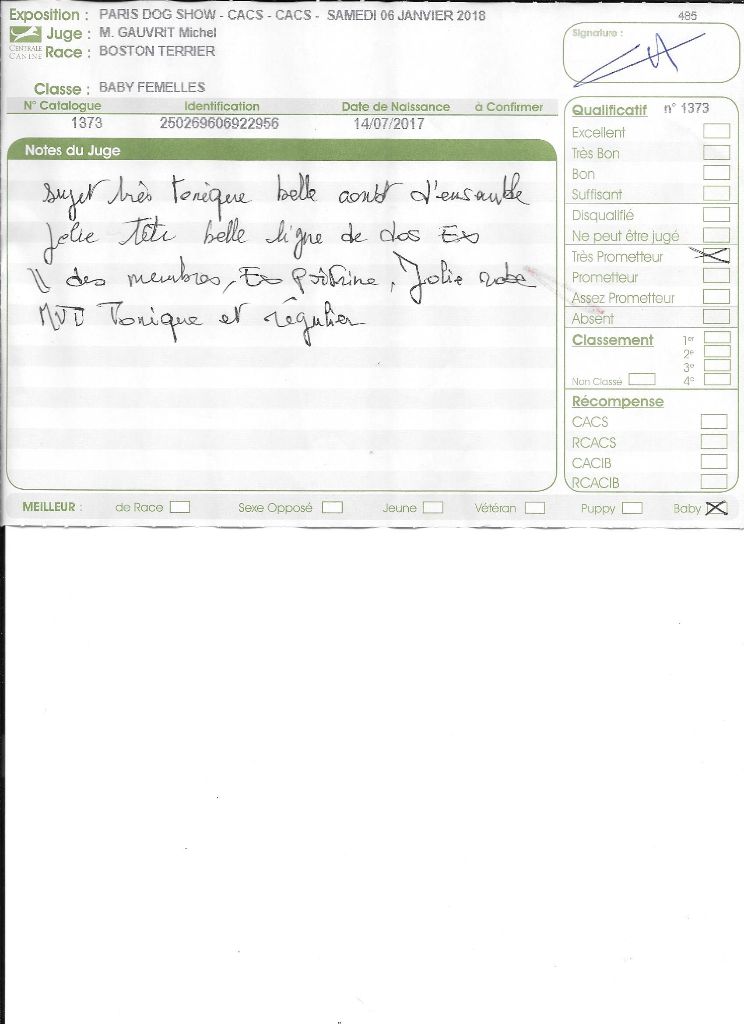 Exposition : PARIS DOG SHOW - CACS - CACS - SAMEDI 06 JANVIER 2018
485
Juge : M. GAUVRIT Michel
CENTRALE CANINE
Race : BOSTON TERRIER
Signature :
Classe : BABY FEMELLES
N° Catalogue Identification Date de Naissance à Confirmer
1373 250269606922956 14/07/2017
Notes du Juge
Sujet très tonique belle const d'ensemble
Jolie tête belle ligne de dos Ex
\\ des membres, Ex Poitrine, Jolie robe
MVT Tonique et régulier
Qualificatif n° 1373
Excellent
Très Bon
Bon
Suffisant
Disqualifié
Ne peut être jugé
Très Prometteur
Prometteur
Assez Prometteur
Absent
Classement 1er
2e
3e
Non Classé 4e
Récompense
CACS
RCACS
CACIB
RCACIB
MEILLEUR : de Race Sexe Opposé Jeune Vétéran Puppy Baby